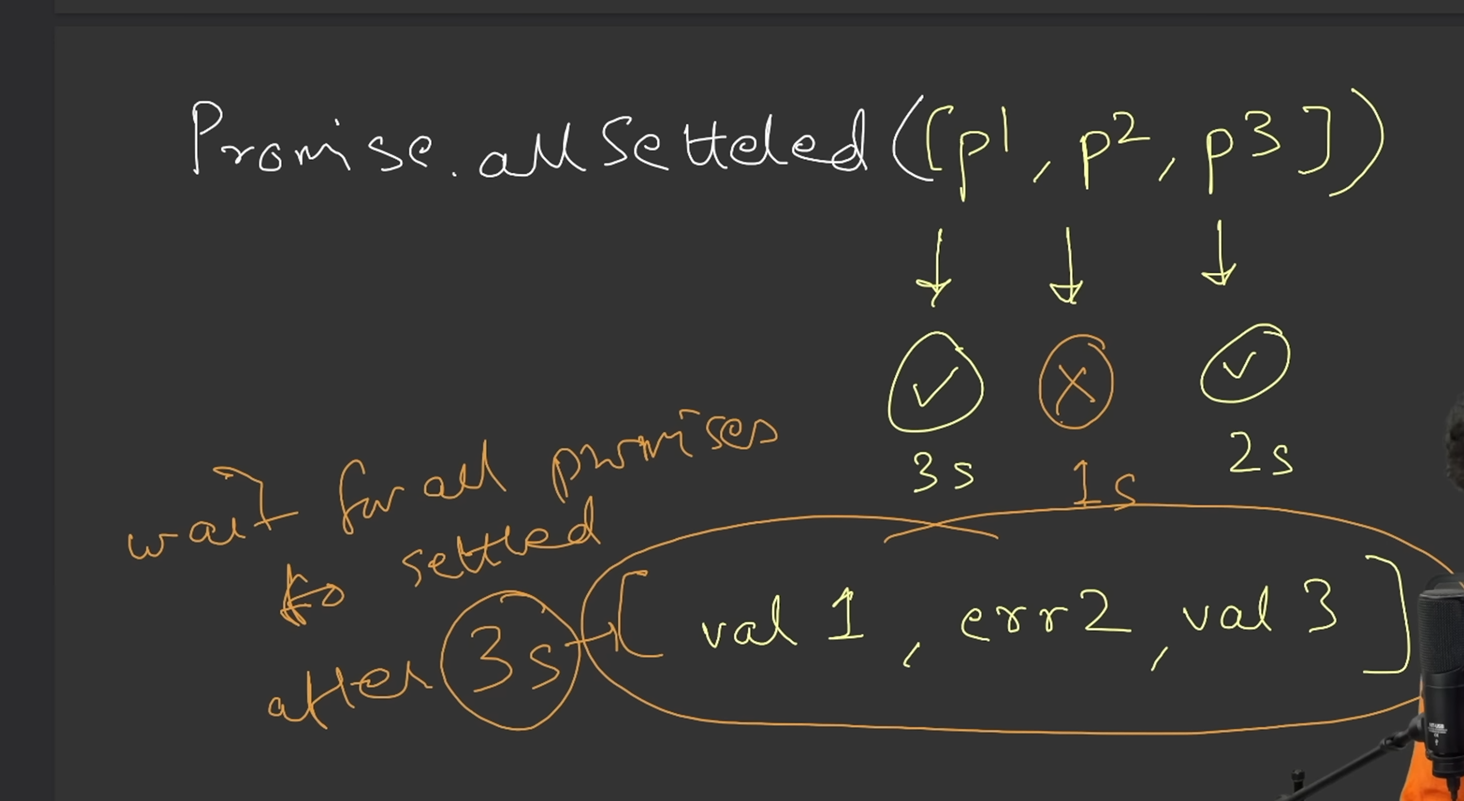 Promise.allSetteled([p1, p2, p3])
3s 1s 2s
wait for all promises
to settled
after 3s [val 1, err2, val 3]